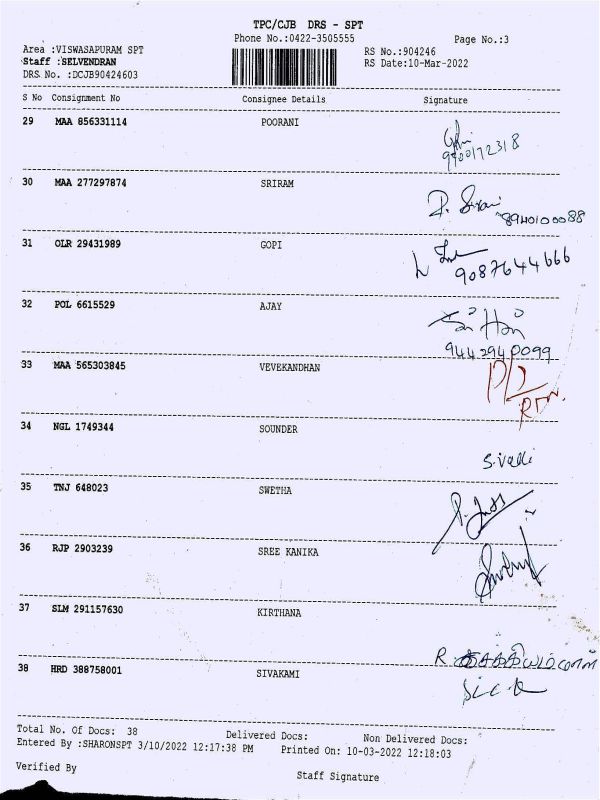 TPC/CJB DRS - SPT
Phone No.:0422-3505555 Page No.:3
Area :VISWASAPURAM SPT RS No.:904246
Staff :SELVENDRAN RS Date:10-Mar-2022
DRS. No. :DCJB90424603
S No Consignment No Consignee Details Signature
29 MAA 856331114 POORANI
9400172318
30 MAA 277297874 SRIRAM
8940100088
31 OLR 29431989 GOPI
9087644666
32 POL 6615529 AJAY
9442940099
33 MAA 565303845 VEVEKANDHAN
34 NGL 1749344 SOUNDER
S.Valli
35 TNJ 648023 SWETHA
36 RJP 2903239 SREE KANIKA
37 SLM 291157630 KIRTHANA
R
38 HRD 388758001 SIVAKAMI
Total No. Of Docs: 38 Delivered Docs: Non Delivered Docs:
Entered By :SHARONSPT 3/10/2022 12:17:38 PM Printed On: 10-03-2022 12:18:03
Verified By Staff Signature